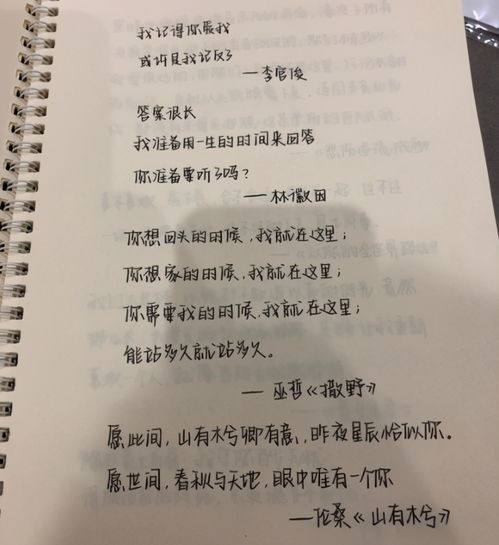 我记得你爱我
或许是我记反了
—李宫俊
答案很长
我准备用一生的时间来回答
你准备要听了吗?
—林徽因
你想回头的时候,我就在这里;
你想家的时候,我就在这里;
你需要我的时候,我就在这里;
能站多久就站多久。
—巫哲《撒野》
愿此间,山有木兮卿有意,昨夜星辰恰似你。
愿世间,春秋与天地,眼中唯有一个你
—伦桑《山有木兮》